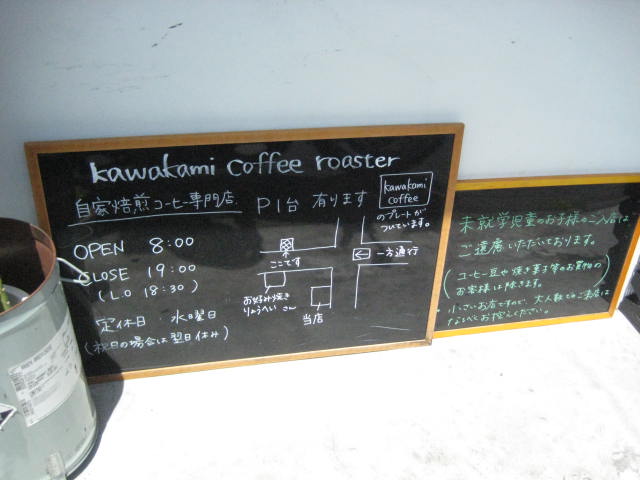 kawakami coffee roaster
自家焙煎コーヒー専門店
P1台 有ります
kawakami
coffee
のプレートが
ついています。
OPEN 8:00
CLOSE 19:00
(L.O 18:30)
定休日 水曜日
(祝日の場合は翌日休み)
ここです
一方通行
お好み焼き
りょうへい さん
当店
未就学児童のお子様のご入店は
ご遠慮いただいております。
(コーヒー豆や焼き菓子等のお買物の
お客様は除きます。)
小さいお店ですので、大人数でのご来店は
なるべくお控えください。